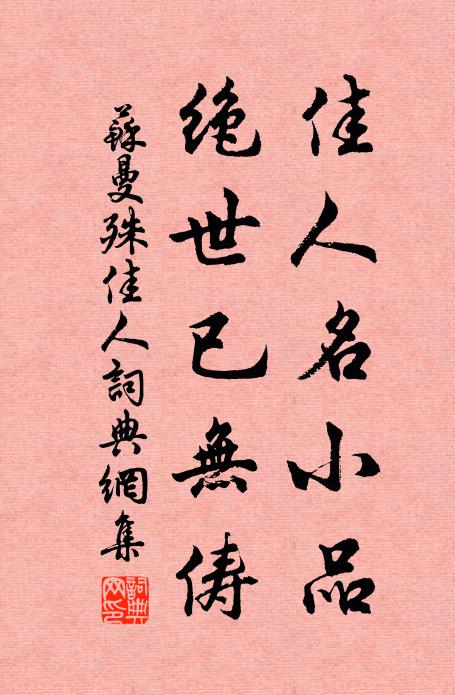 佳人名小品
绝世已無俦
蘇曼殊佳人詞典網集
詞典網印